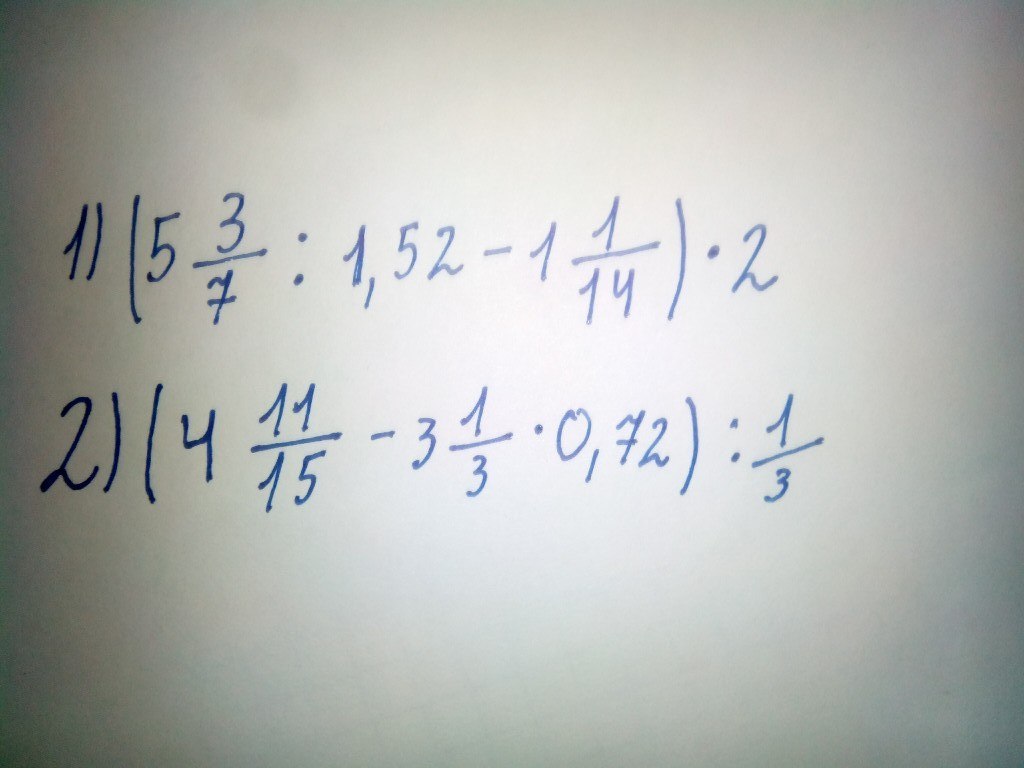 1) (5 3/7 : 1,52 - 1 1/14) · 2
2) (4 11/15 - 3 1/3 · 0,72) : 1/3